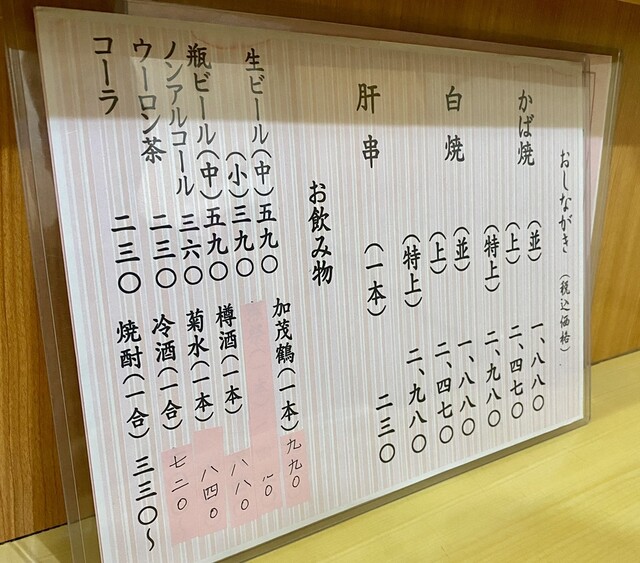 おしながき（税込価格）
かば焼（並）一、八八〇
（上）二、四七〇
（特上）二、九八〇
白焼（並）一、八八〇
（上）二、四七〇
（特上）二、九八〇
肝串（一本）二三〇
お飲み物
生ビール（中）五九〇
（小）三九〇
瓶ビール（中）五九〇
ノンアルコール三六〇
ウーロン茶二三〇
コーラ二三〇
加茂鶴（一本）九九〇
樽酒（一本）八八〇
菊水（一本）八四〇
冷酒（一合）七二〇
焼酎（一合）三三〇〜